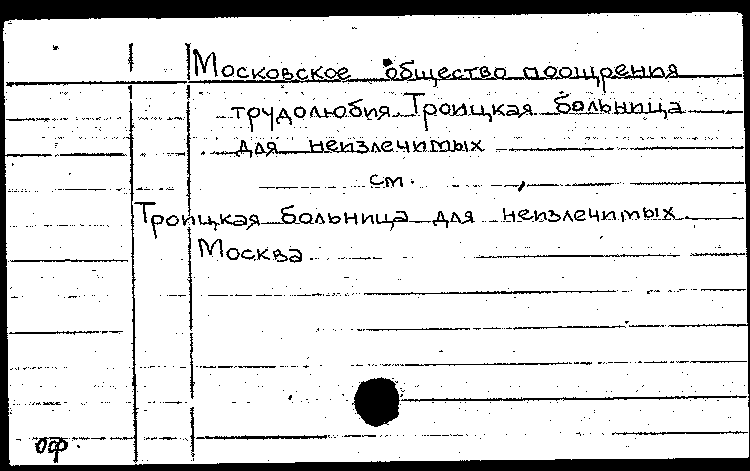 Московское общество поощрения
трудолюбия. Троицкая больница
для неизлечимых
см.
Троицкая больница для неизлечимых.
Москва.
оф.